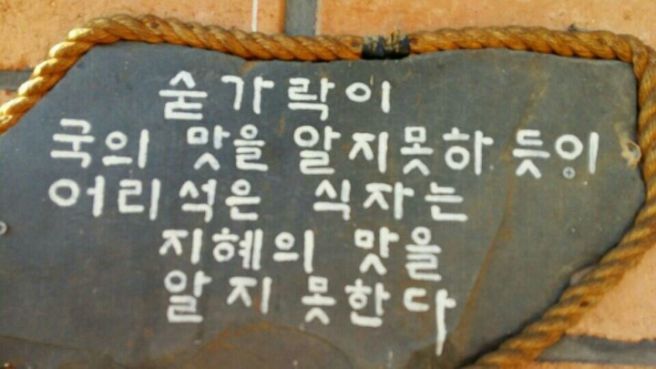 숟가락이
국의 맛을 알지못하 듯이
어리석은 식자는
지혜의 맛을
알지 못한다